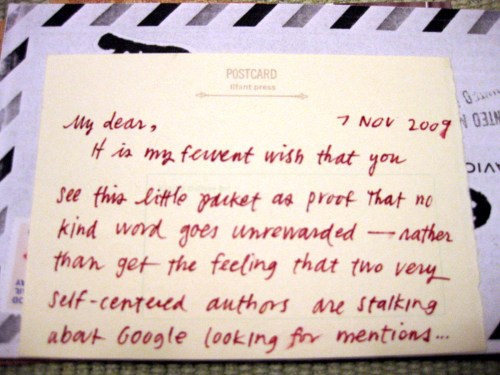 POSTCARD
iffant press
My dear,
7 NOV 2009
It is my fervent wish that you
see this little packet as proof that no
kind word goes unrewarded — rather
than get the feeling that two very
self-centered authors are stalking
about Google looking for mentions...